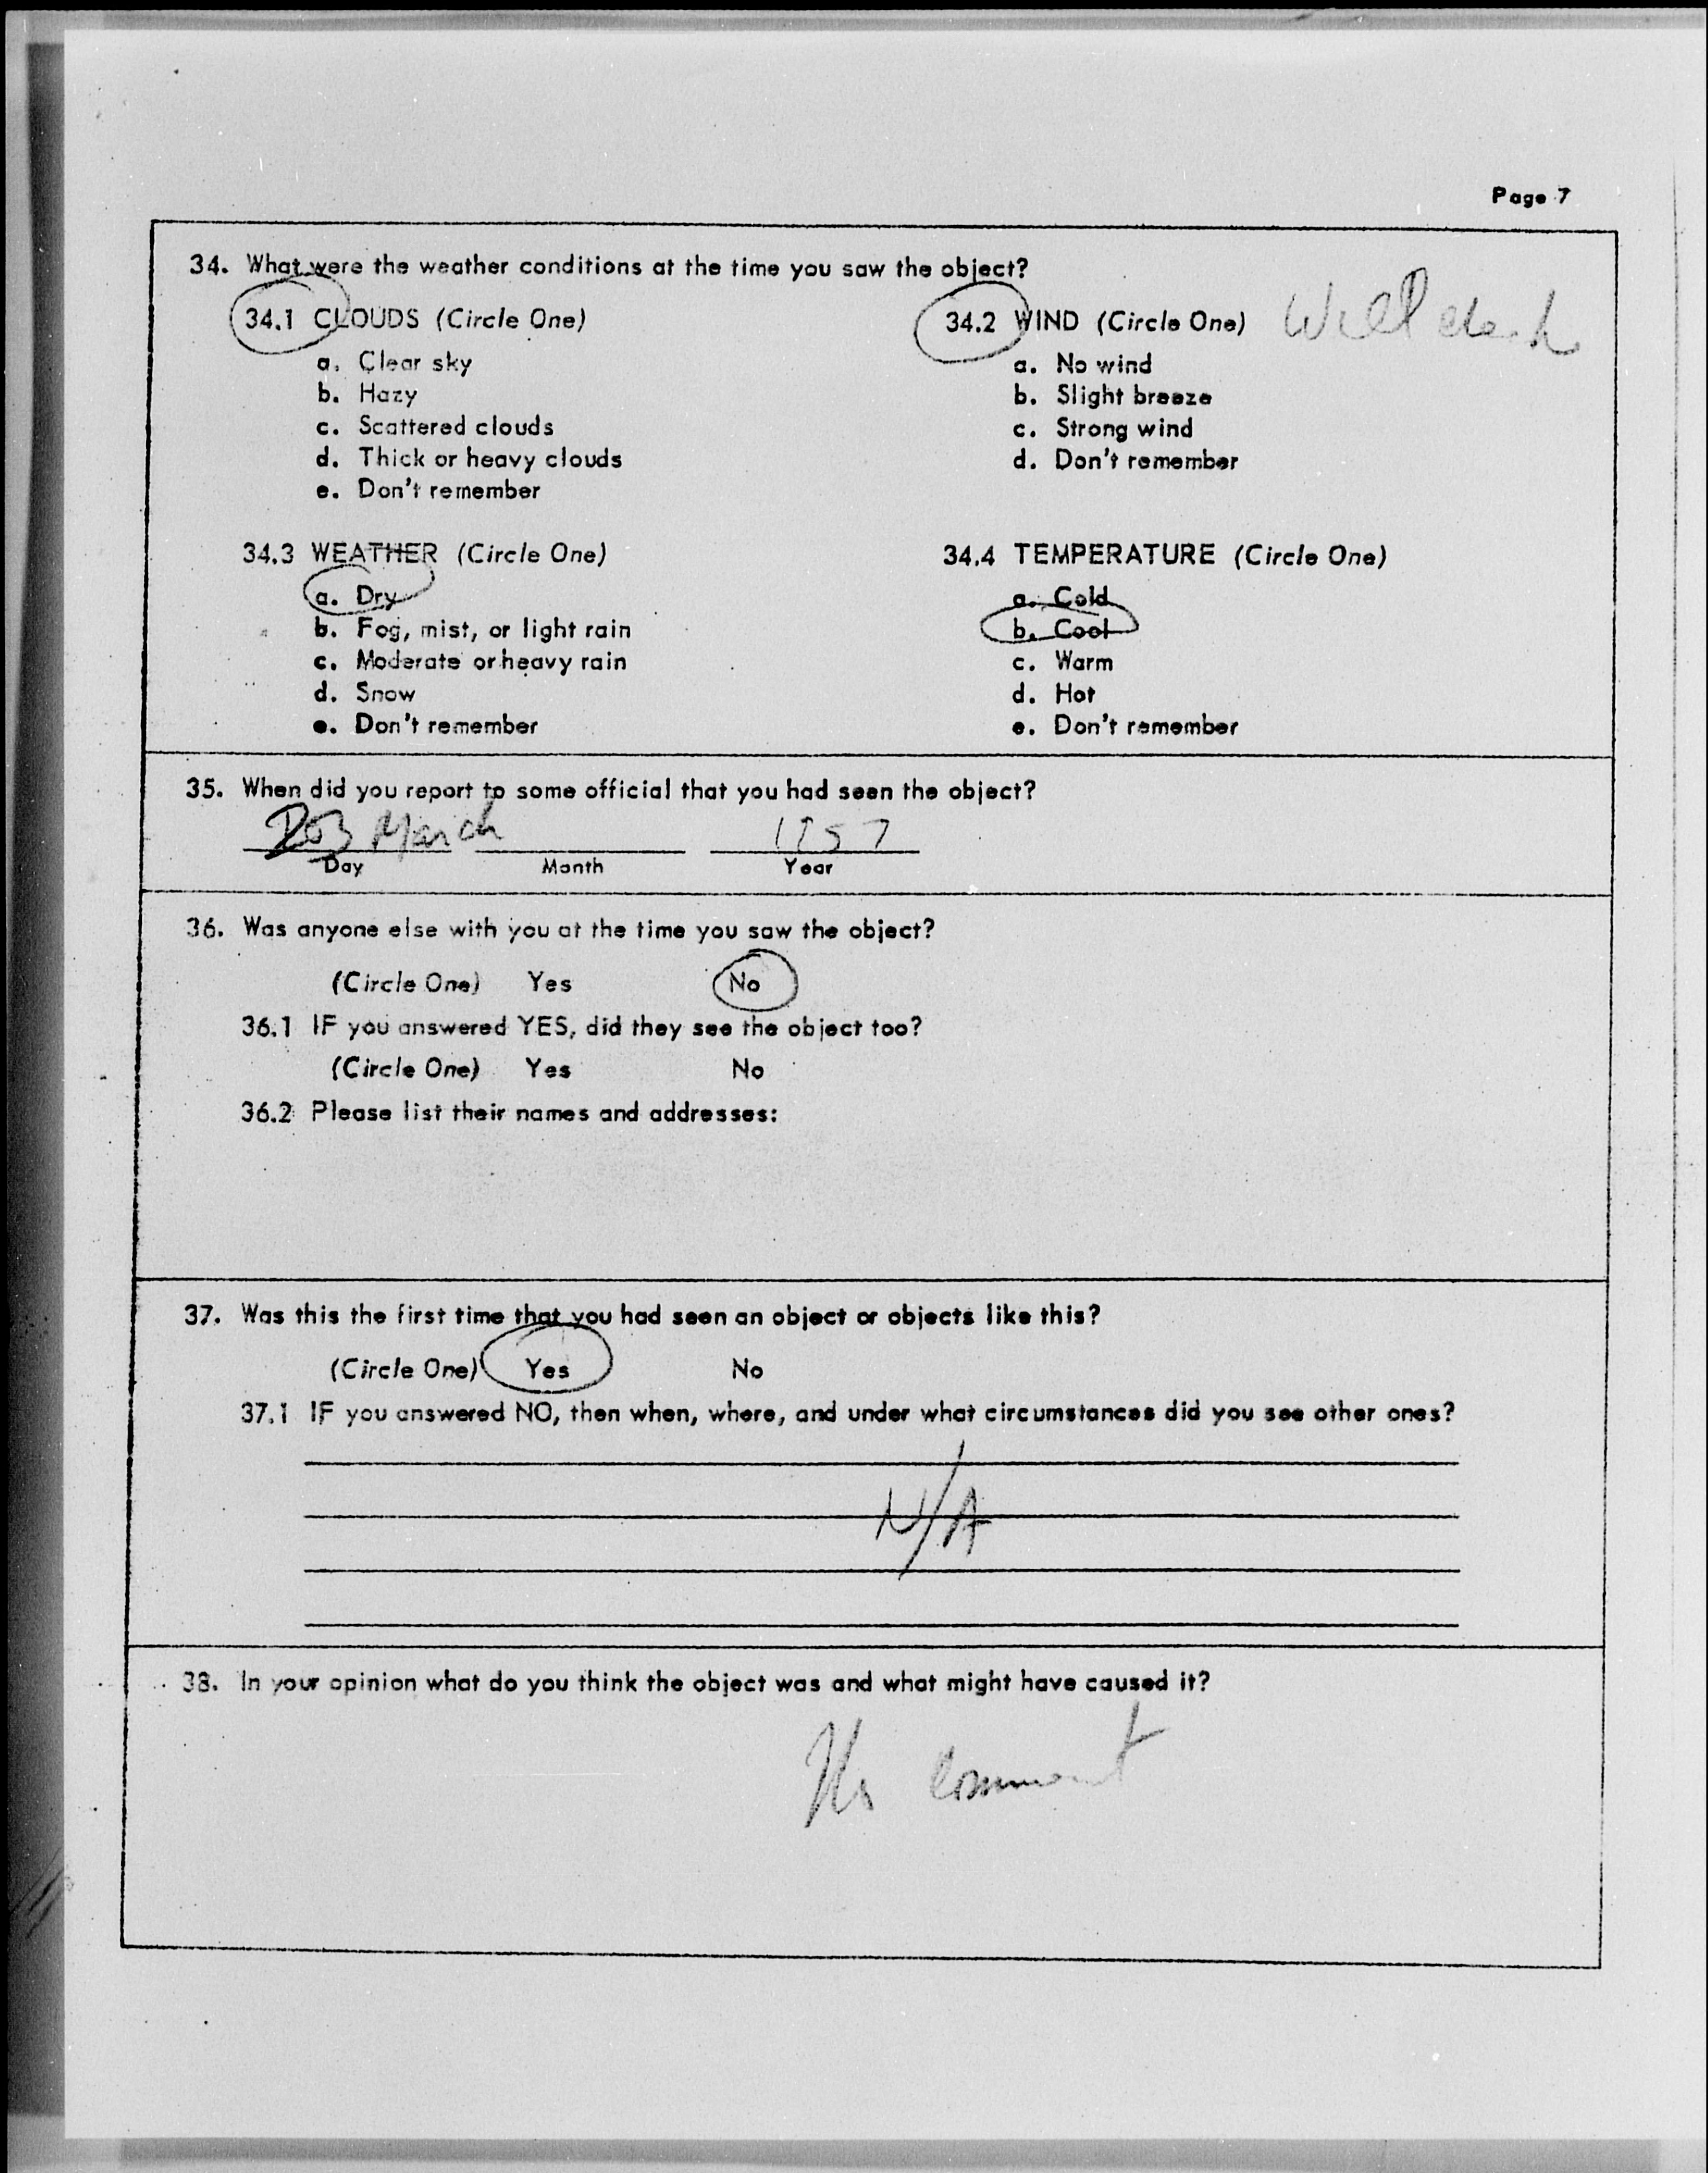 Page 7
34. What were the weather conditions at the time you saw the object?
34.1 CLOUDS (Circle One)
a. Clear sky
b. Hazy
c. Scattered clouds
d. Thick or heavy clouds
e. Don't remember
34.2 WIND (Circle One) Will check
a. No wind
b. Slight breeze
c. Strong wind
d. Don't remember
34.3 WEATHER (Circle One)
a. Dry
b. Fog, mist, or light rain
c. Moderate or heavy rain
d. Snow
e. Don't remember
34.4 TEMPERATURE (Circle One)
a. Cold
b. Cool
c. Warm
d. Hot
e. Don't remember
35. When did you report to some official that you had seen the object?
March 1957
Day Month Year
36. Was anyone else with you at the time you saw the object?
(Circle One) Yes No
36.1 IF you answered YES, did they see the object too?
(Circle One) Yes No
36.2 Please list their names and addresses:
37. Was this the first time that you had seen an object or objects like this?
(Circle One) Yes No
37.1 IF you answered NO, then when, where, and under what circumstances did you see other ones?
N/A
38. In your opinion what do you think the object was and what might have caused it?
No comment